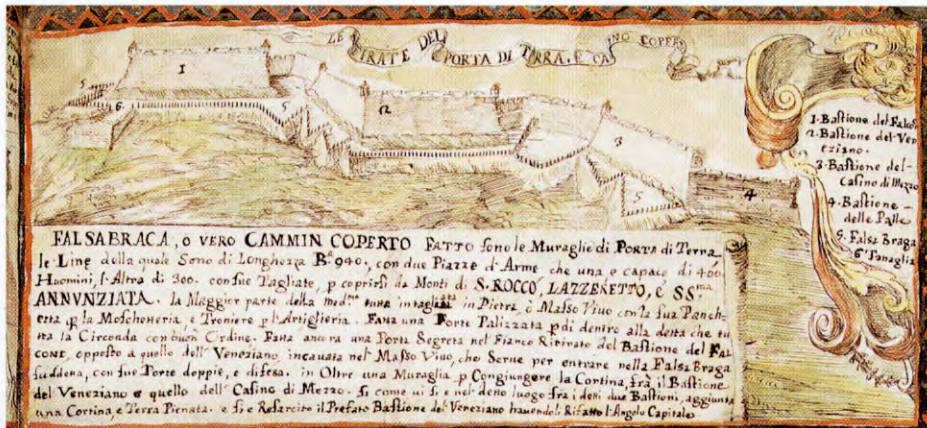 LE TIRATE DEL PORTA DI TERRA, E CA NO COPER
1
2
3
4
5
5
5
6
1. Bastione del Falco
2. Bastione del Ven
etziano.
3. Bastione del
Casino di Mezzo
4. Bastione
delle Palle
5. Falsa Braga
6 Tanaglia
FALSABRACA, O VERO CAMMIN COPERTO FATTO sono le Muraglie di PORTA di Terra,
le Line della quale Sono di Longhezza Bª 940, con due Piazze d'Arme che una e capace di 400
Huomini, l'Altra di 300. con sue Tagliate, p coprirsi da Monti di S. ROCCO, LAZZERETTO, È SSma
ANNVNZIATA. la Maggior parte della medma tutta intagliata in Pietra, ò Masso Vivo con la sua Panch
etta p la Moschetteria e Troniere p l'Artiglieria. Fatta una Forte Palizzata p di dentro alla detta che tu
tta la Circonda con buon Ordine. Fatta ancora una Porta Segreta nel Fianco Ritirato del Bastione del FAL
CONE, opposto a quello dell' Veneziano, incavata nel Masso Vivo, che Serve per entrare nella Falsa Braga
suddetta, con sue Porte doppie, e difesa. in Oltre una Muraglia p Congiungere la Cortina, frà il Bastione
del Veneziano e quello dell' Casino di Mezzo. si come vi si e nel detto luogo fra i detti due Bastioni, aggiunta
una Cortina, e Terra Pienata. e si e Resarcito il Prefato Bastione del Veneziano havendoli Rifatto l'Angolo Capitale